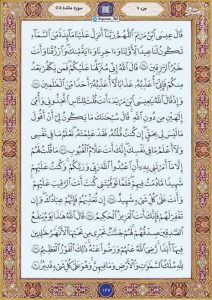 جزء ۷
سوره مائده ۵
قَالَ عِيسَى ابْنُ مَرْيَمَ اللَّهُمَّ رَبَّنَا أَنزِلْ عَلَيْنَا مَائِدَةً مِّنَ السَّمَاءِ
تَكُونُ لَنَا عِيدًا لِّأَوَّلِنَا وَءَاخِرِنَا وَءَايَةً مِّنكَ وَارْزُقْنَا وَأَنتَ
خَيْرُ الرَّٰزِقِينَ ١١٤ قَالَ اللَّهُ إِنِّي مُنَزِّلُهَا عَلَيْكُمْ فَمَن يَكْفُرْ بَعْدُ
مِنكُمْ فَإِنِّي أُعَذِّبُهُ عَذَابًا لَّا أُعَذِّبُهُ أَحَدًا مِّنَ الْعَٰلَمِينَ ١١٥
وَإِذْ قَالَ اللَّهُ يَٰعِيسَى ابْنَ مَرْيَمَ ءَأَنتَ قُلْتَ لِلنَّاسِ اتَّخِذُونِي وَأُمِّيَ
إِلَٰهَيْنِ مِن دُونِ اللَّهِ قَالَ سُبْحَٰنَكَ مَا يَكُونُ لِي أَنْ أَقُولَ
مَا لَيْسَ لِي بِحَقٍّ إِن كُنتُ قُلْتُهُ فَقَدْ عَلِمْتَهُ تَعْلَمُ مَا فِي نَفْسِي
وَلَا أَعْلَمُ مَا فِي نَفْسِكَ إِنَّكَ أَنتَ عَلَّٰمُ الْغُيُوبِ ١١٦ مَا قُلْتُ لَهُمْ
إِلَّا مَا أَمَرْتَنِي بِهِ أَنِ اعْبُدُوا اللَّهَ رَبِّي وَرَبَّكُمْ وَكُنتُ عَلَيْهِمْ
شَهِيدًا مَّا دُمْتُ فِيهِمْ فَلَمَّا تَوَفَّيْتَنِي كُنتَ أَنتَ الرَّقِيبَ عَلَيْهِمْ
وَأَنتَ عَلَىٰ كُلِّ شَيْءٍ شَهِيدٌ ١١٧ إِن تُعَذِّبْهُمْ فَإِنَّهُمْ عِبَادُكَ وَإِن
تَغْفِرْ لَهُمْ فَإِنَّكَ أَنتَ الْعَزِيزُ الْحَكِيمُ ١١٨ قَالَ اللَّهُ هَٰذَا يَوْمُ يَنفَعُ
الصَّٰدِقِينَ صِدْقُهُمْ لَهُمْ جَنَّٰتٌ تَجْرِي مِن تَحْتِهَا الْأَنْهَٰرُ خَٰلِدِينَ
فِيهَا أَبَدًا رَّضِيَ اللَّهُ عَنْهُمْ وَرَضُوا عَنْهُ ذَٰلِكَ الْفَوْزُ الْعَظِيمُ ١١٩
لِلَّهِ مُلْكُ السَّمَٰوَٰتِ وَالْأَرْضِ وَمَا فِيهِنَّ وَهُوَ عَلَىٰ كُلِّ شَيْءٍ قَدِيرٌ ١٢٠
١٢٧